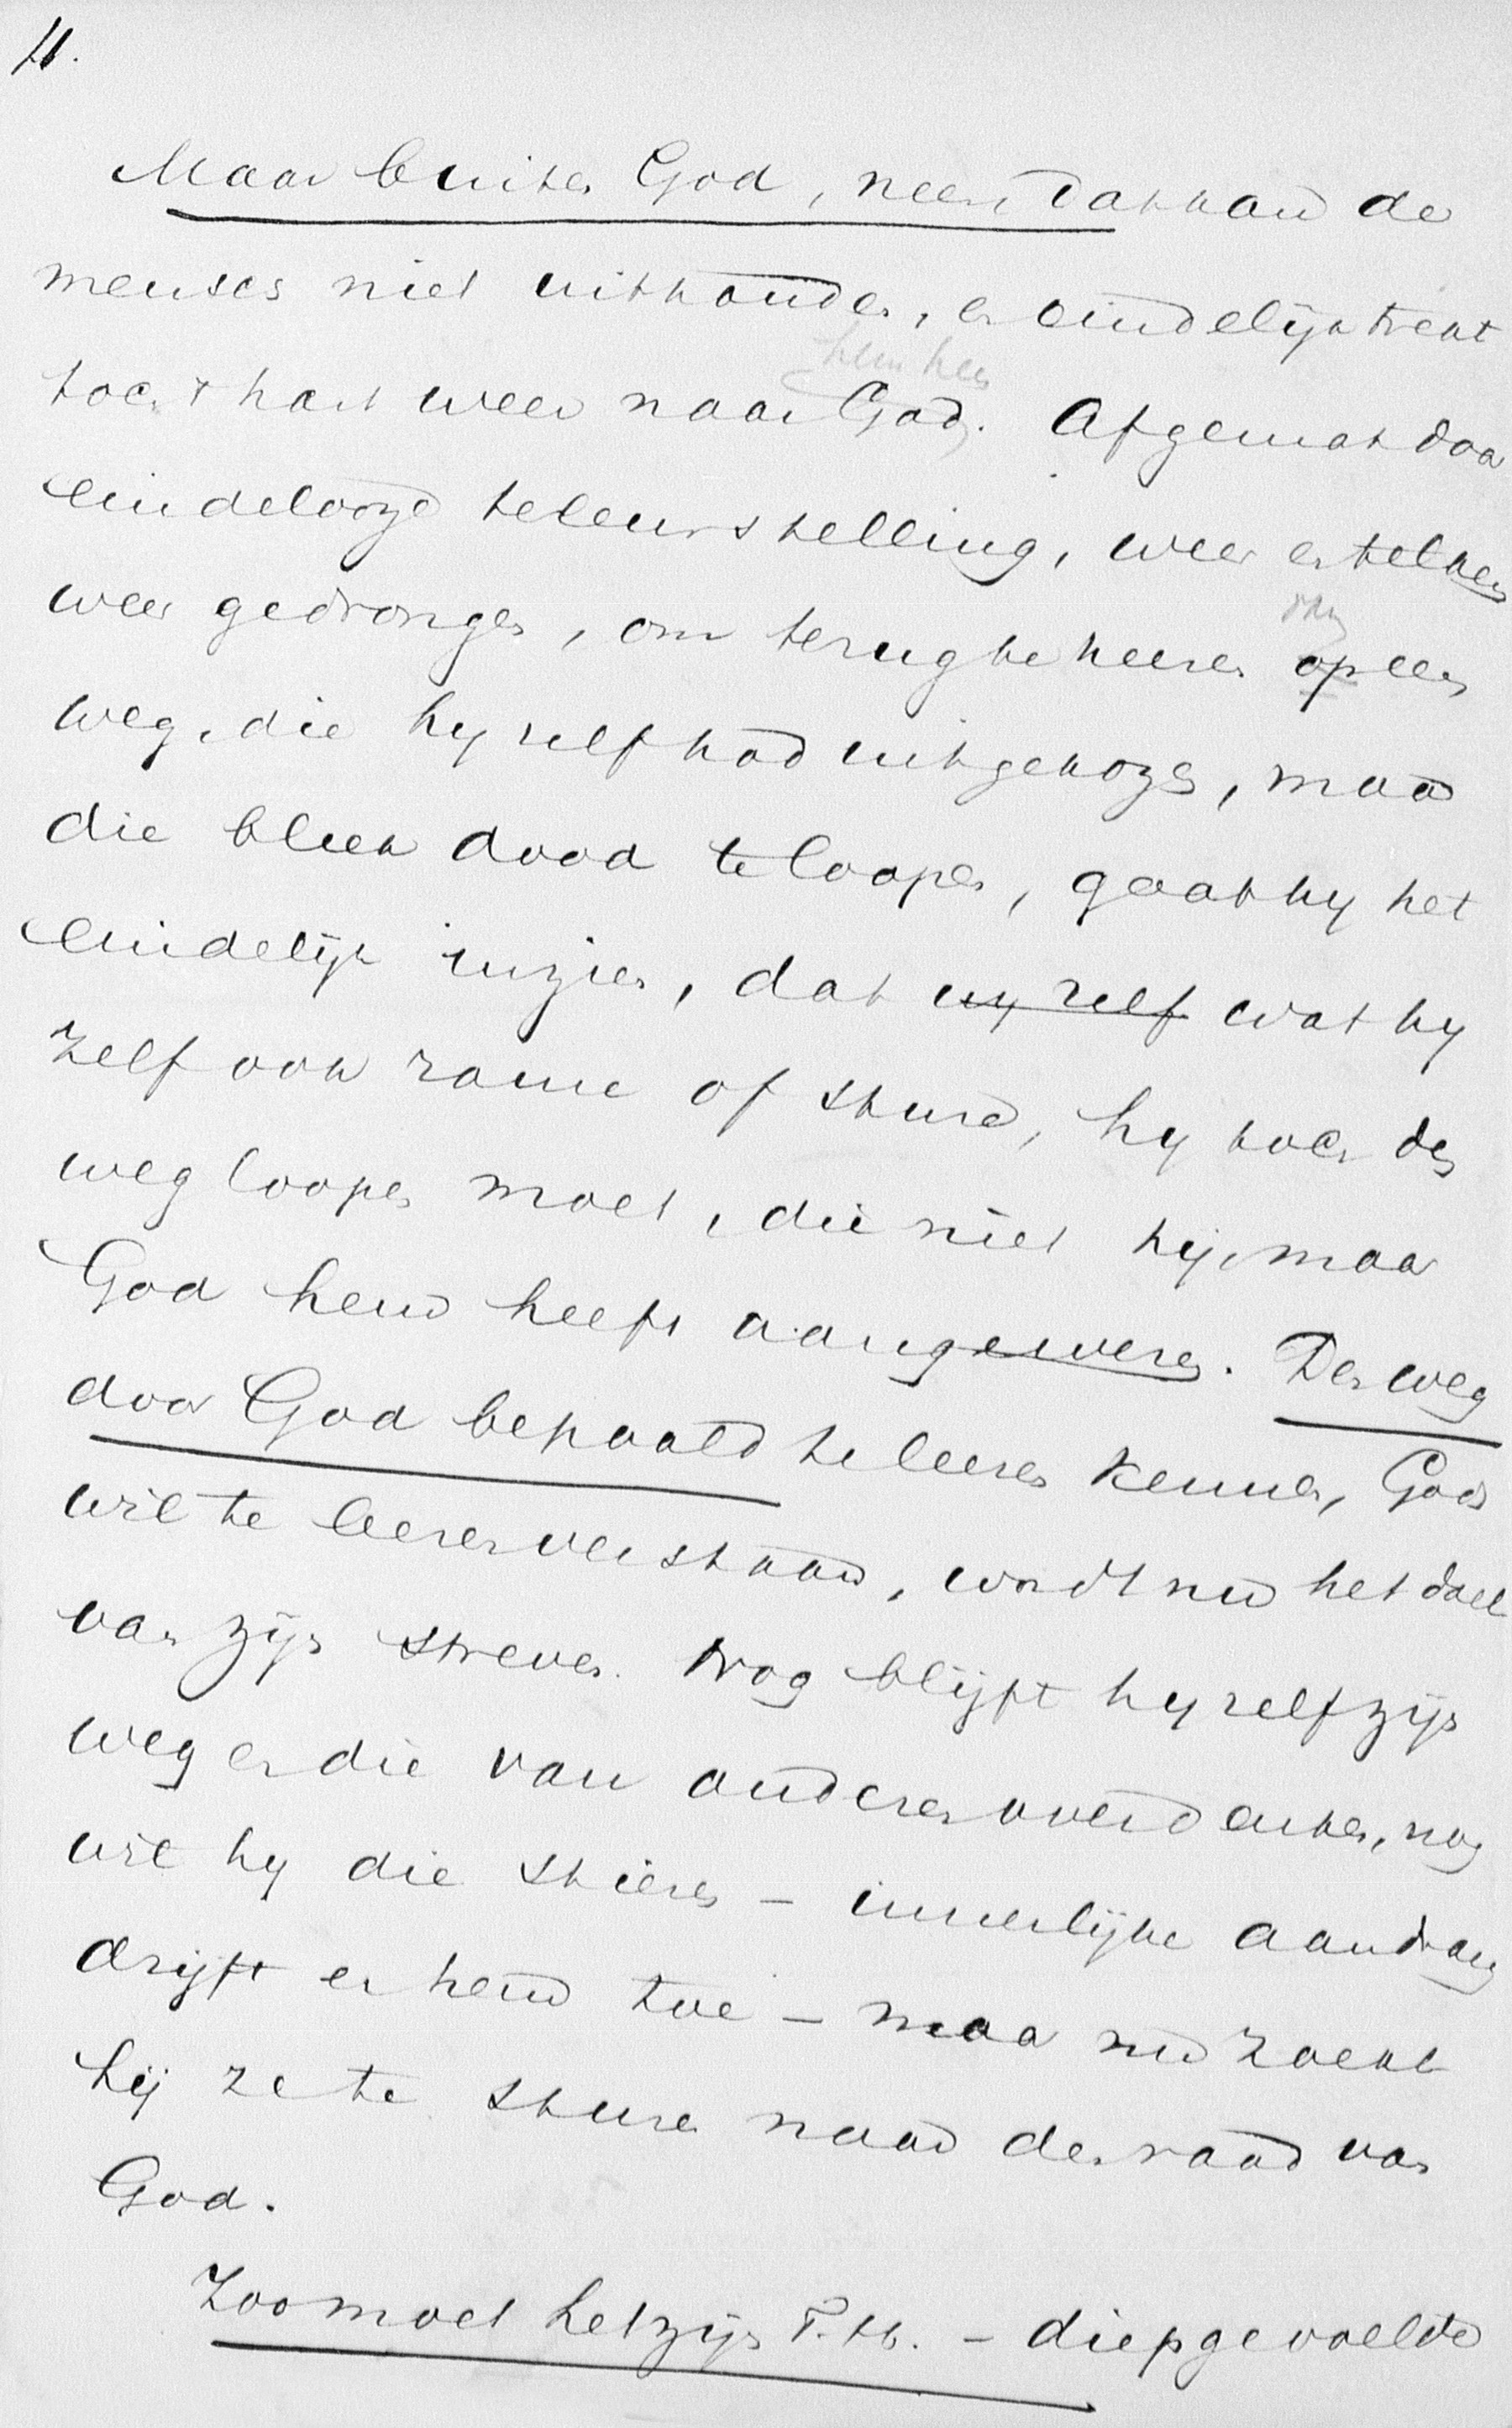 11.
Maar buiten God, neen, dat kan de
mensch niet uithouden, en eindelijk trekt
toch 't hart weer naar God. hem heen
Afgemat door
eindelooze teleurstelling, weer en telkens
weer gedrongen, om terug te keeren op een
weg, die hy zelf had uitgekozen, maar
die bleek dood te loopen, gaat hy het
eindelijk inzien, dat hy zelf wat hy
zelf ook rame of sture, hy toch den
weg loopen moet, die niet hij, maar
God hem heeft aangewezen. Den weg
door God bepaald te leeren kennen, Gods
wil te leeren verstaan, wordt nu het doel
van zijn streven. Nog blijft hy zelf zijn
weg en die van anderen overdenken, nog
wil hy die stieren – innerlijke aandrang
drijft er hem toe – maar nu zoekt
hij ze te sturen naar den raad van
God.
Zoo moet het zijn T.H. – diepgevoelde